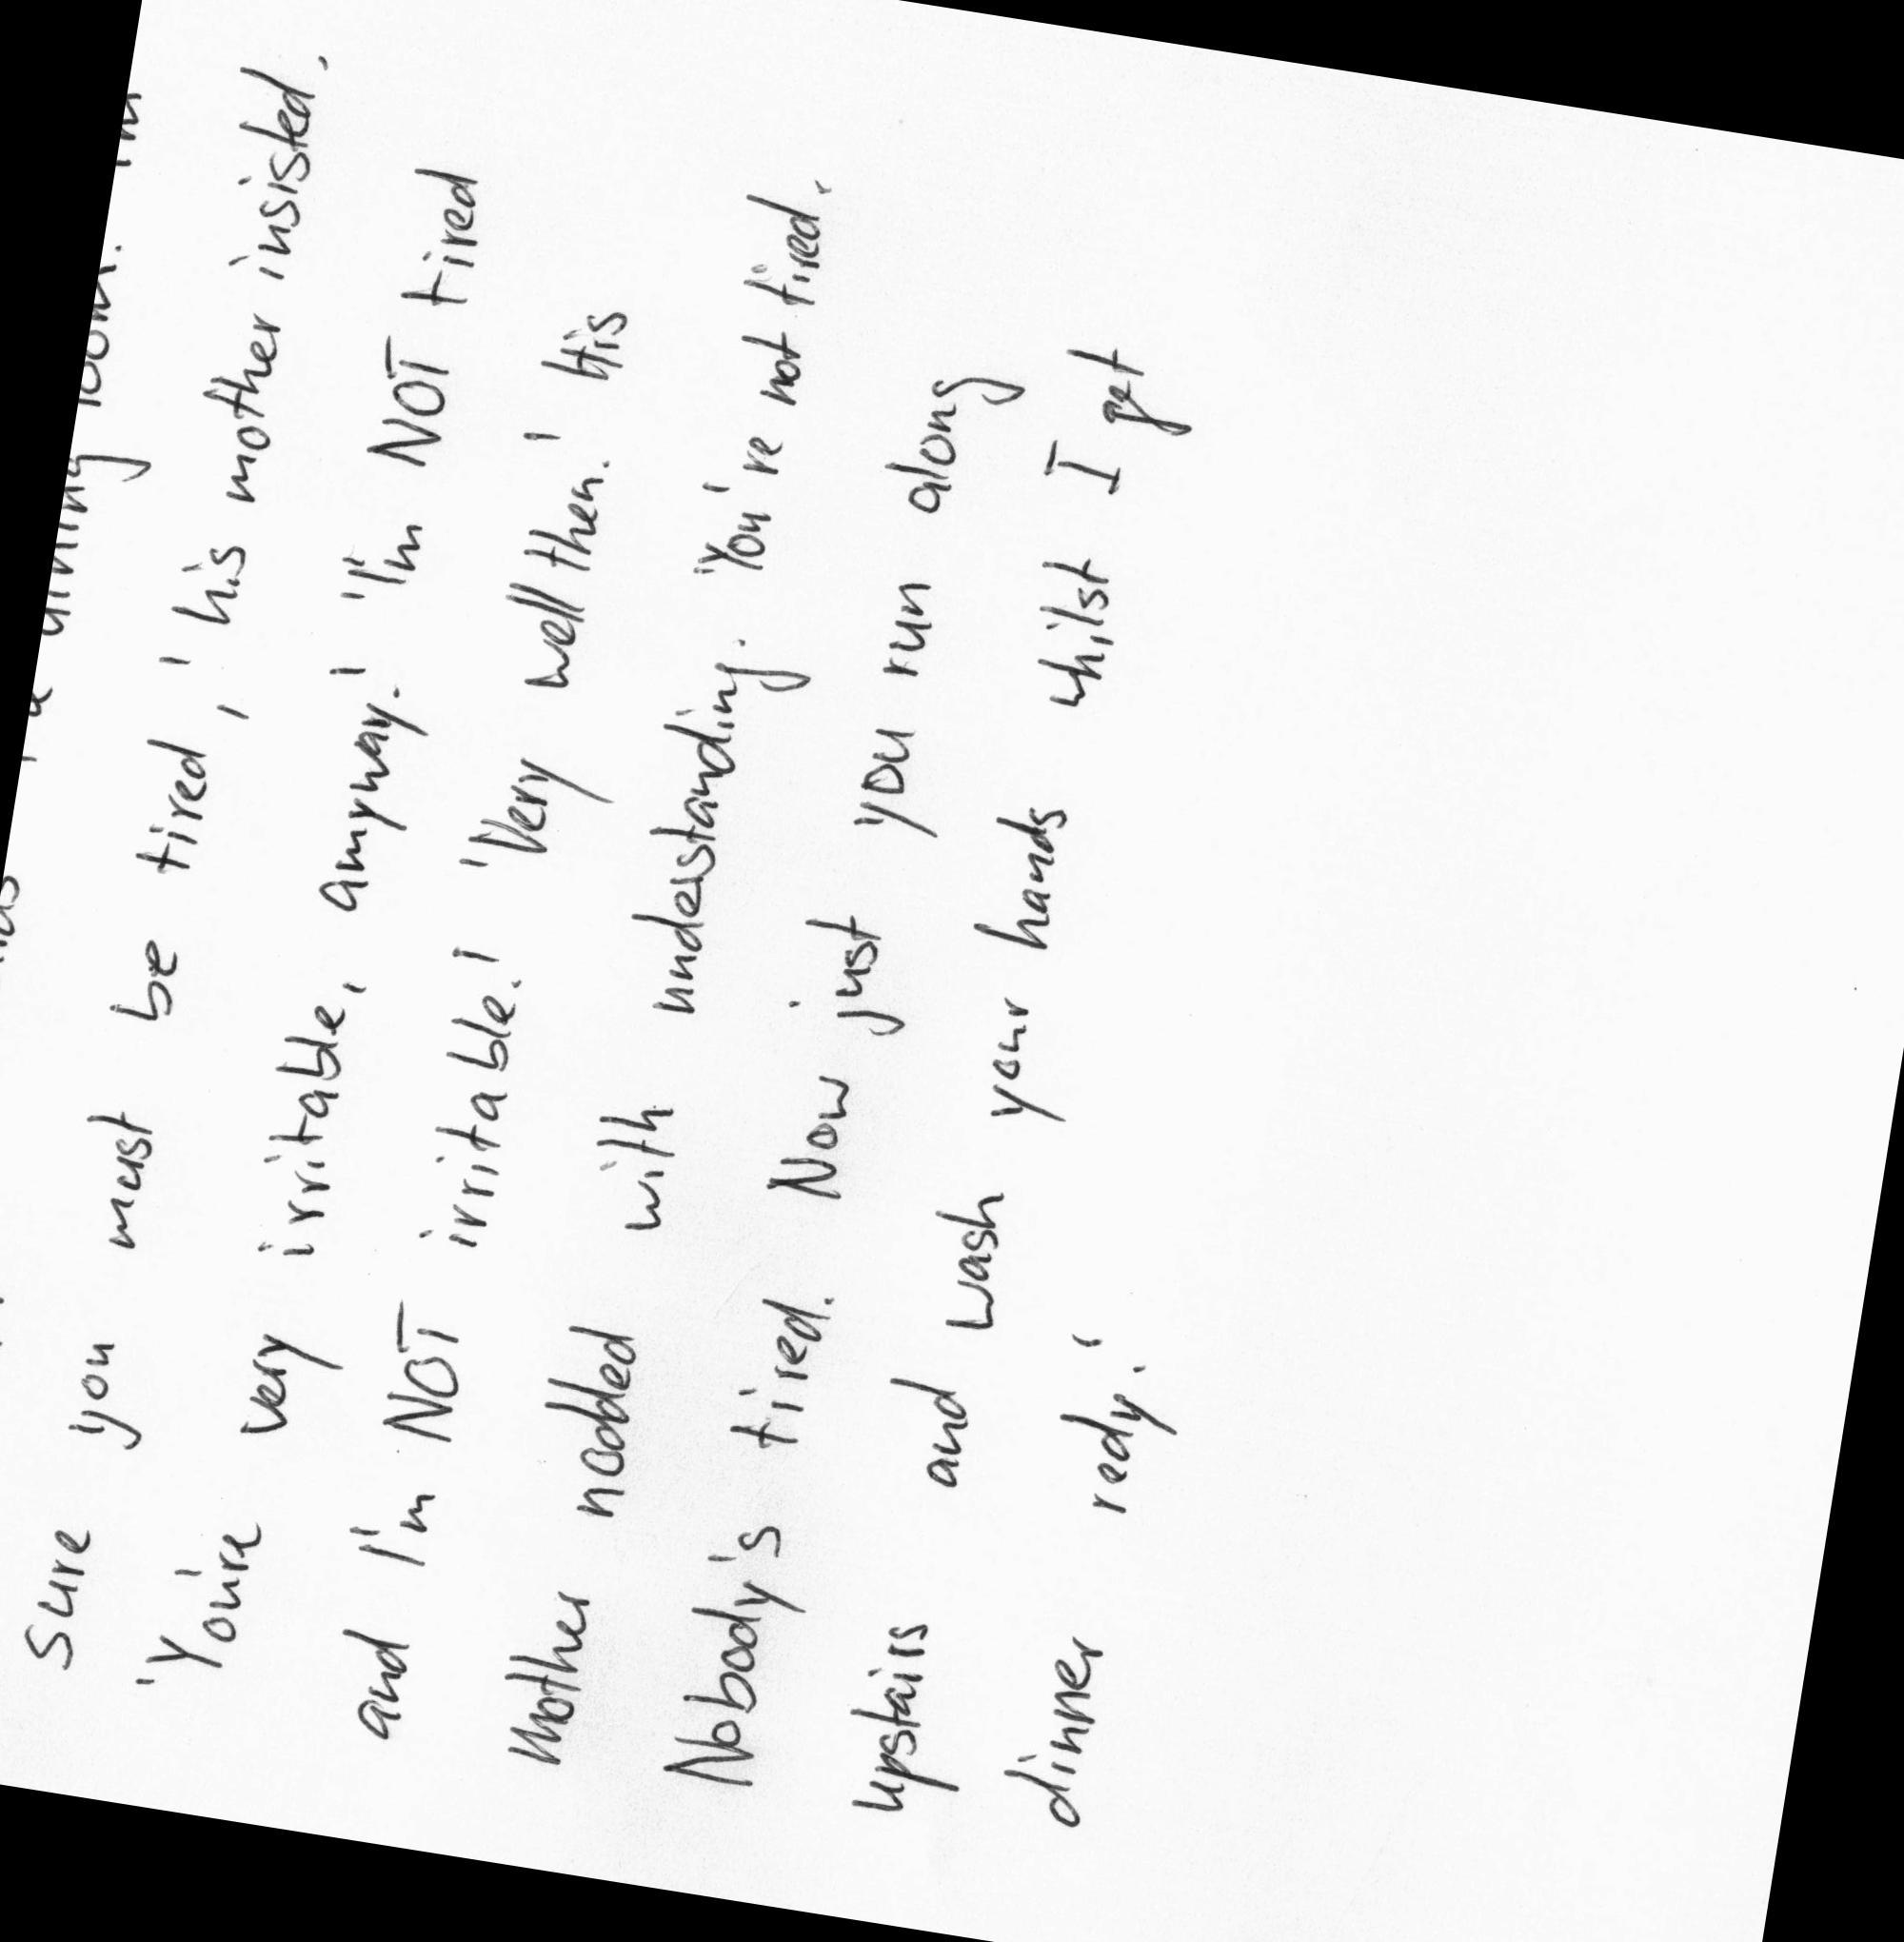 dining room. I'm
Sure you must be tired,' his mother insisted.
'You're very irritable, anyway.' 'I'm NOT tired
and I'm NOT irritable.' 'Very well then.' His
mother nodded with understanding. 'You're not tired.
Nobody's tired. Now just you run along
upstairs and wash your hands whilst I get
dinner redy.'